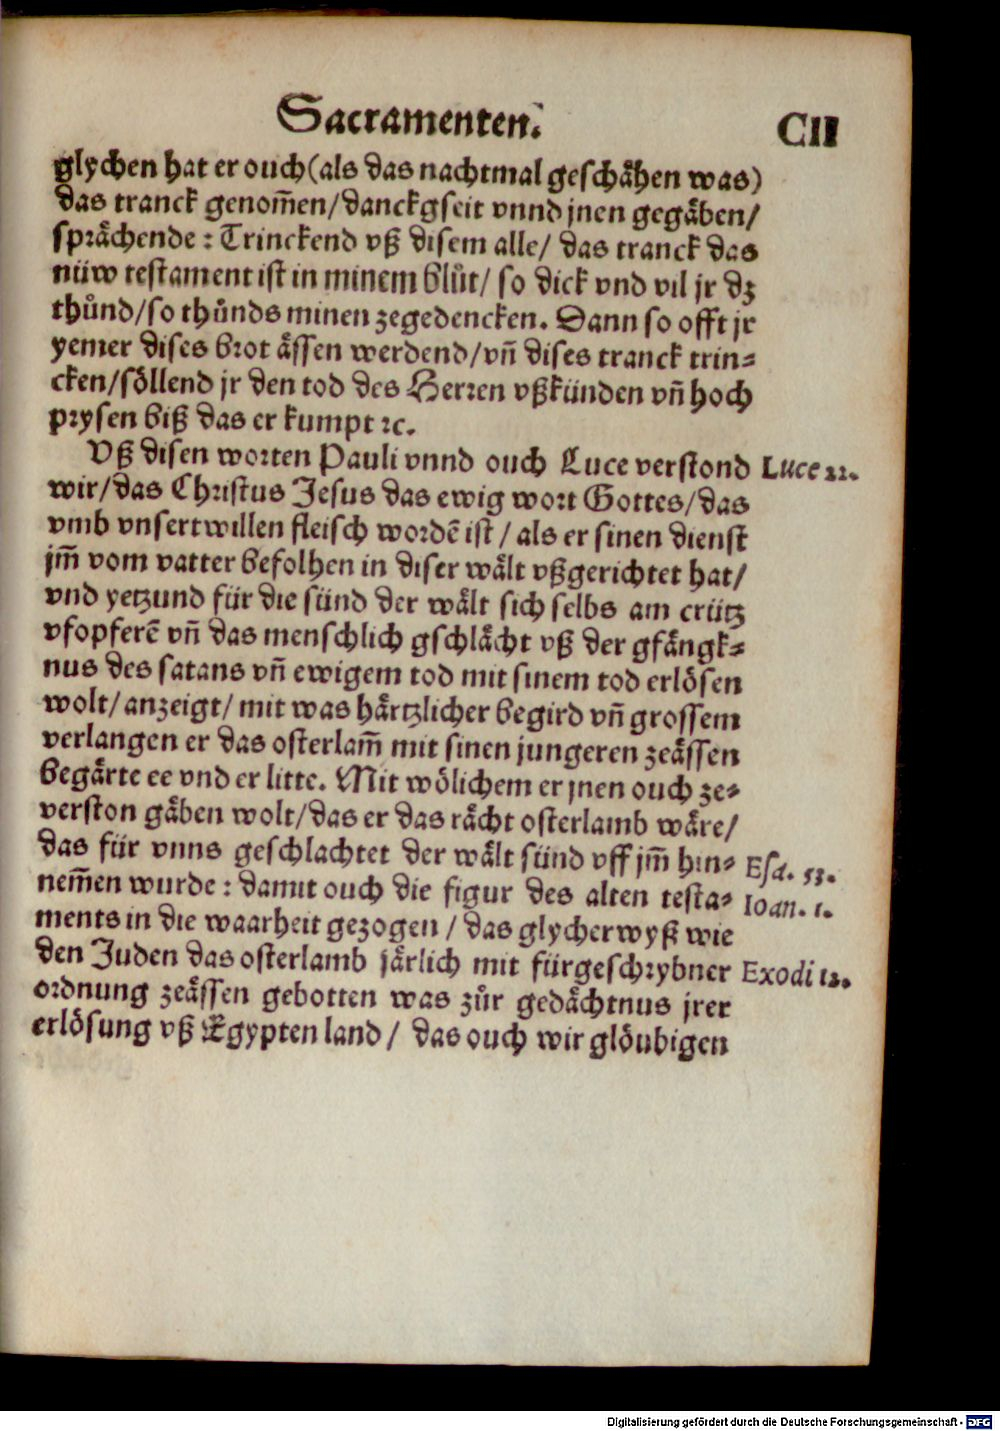 Sacramenten. CII
glychen hat er ouch (als das nachtmal geschåhen was)
das tranck genom̃en/danckgseit vnnd jnen gegåben/
språchende: Trinckend vß disem alle/ das tranck das
nüw testament ist in minem blůt/ so dick vnd vil jr dz
thůnd/so thůnds minen zegedencken. Dann so offt jr
yemer dises brot åssen werdend/vñ dises tranck trin⸗
cken/söllend jr den tod des Herren vßkünden vñ hoch
prysen biß das er kumpt ꝛc.
Vß disen worten Pauli vnnd ouch Luce verstond Luce 22.
wir/das Christus Jesus das ewig wort Gottes/das
vmb vnsert willen fleisch wordẽ ist/ als er sinen dienst
jm̃ vom vatter befolhen in diser wålt vßgerichtet hat/
vnd yetzund für die sünd der wålt sich selbs am crütz
vfopferẽ vñ das menschlich gschlåcht vß der gfångk⸗
nus des satans vñ ewigem tod mit sinem tod erlösen
wolt/anzeigt/ mit was hårtzlicher begird vñ grossem
verlangen er das osterlam̃ mit sinen jungeren zeåssen
begårte ee vnd er litte. Mit wölichem er jnen ouch ze⸗
verston gåben wolt/das er das råcht osterlamb wåre/
das für vnns geschlachtet der wålt sünd vff jm̃ hin⸗ Esa. 53.
nem̃en wurde: damit ouch die figur des alten testa⸗ Ioan. 1.
ments in die waarheit gezogen/ das glycher wyß wie
den Juden das osterlamb jårlich mit fürgeschrybner Exodi 12.
ordnung zeåssen gebotten was zůr gedåchtnus jrer
erlösung vß Egypten land/ das ouch wir glöubigen
Digitalisierung gefördert durch die Deutsche Forschungsgemeinschaft - DFG